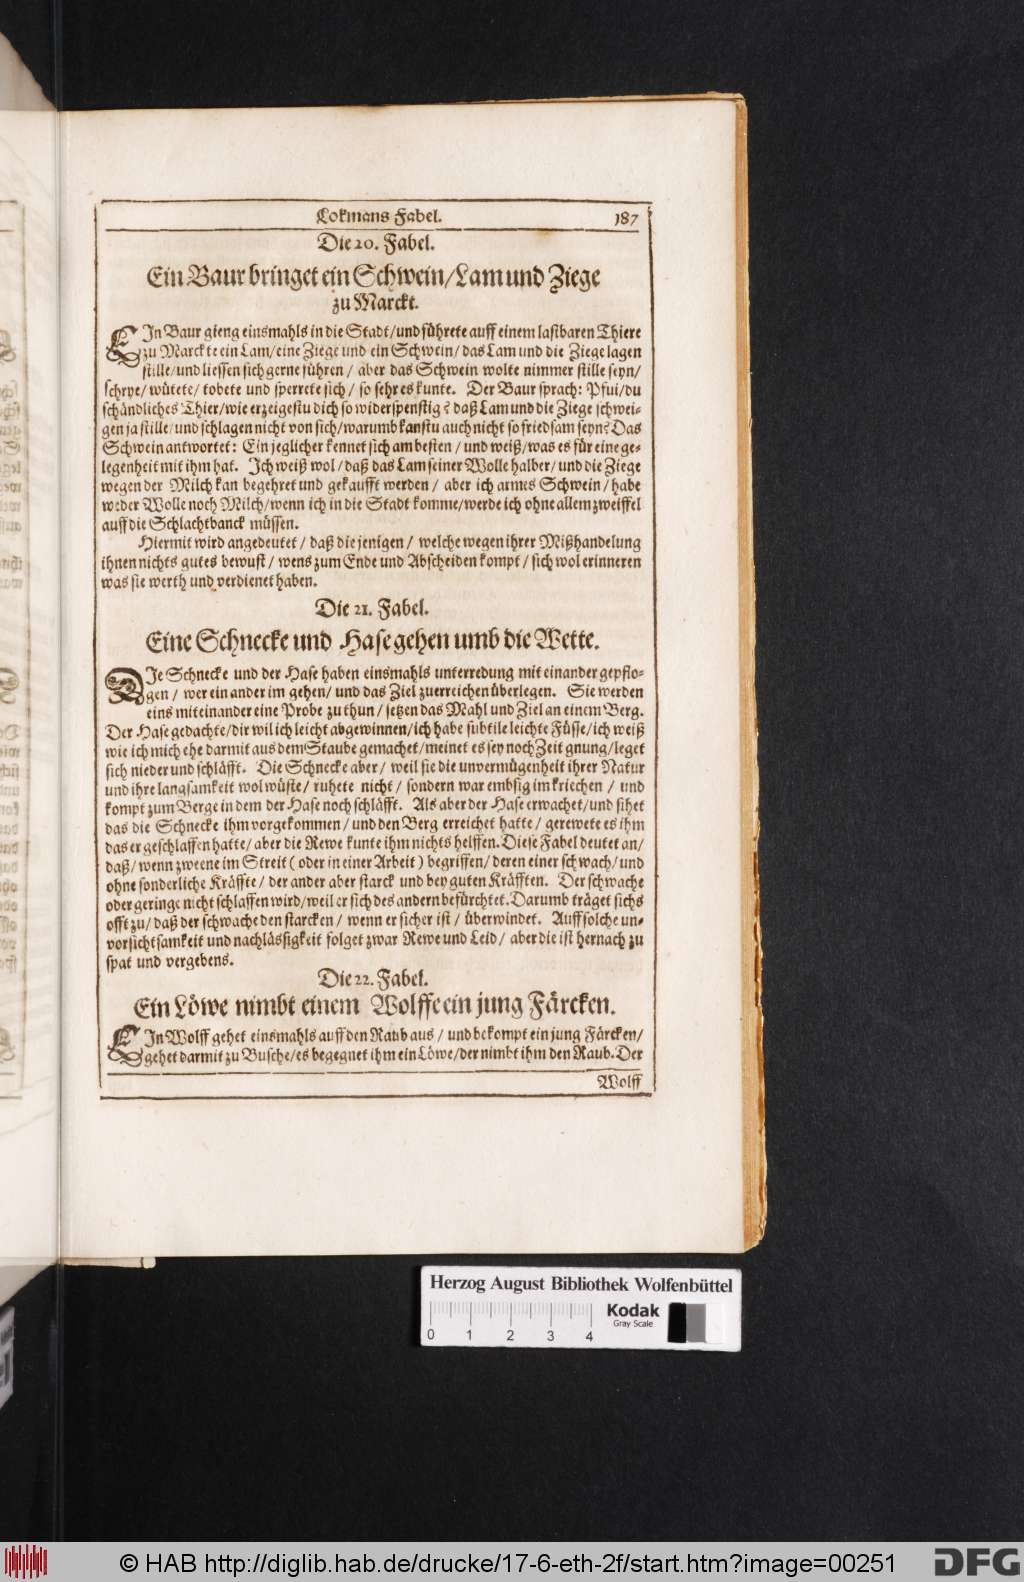 Lokmans Fabel. 187
Die 20. Fabel.
Ein Baur bringet ein Schwein/Lam und Ziege
zu Marckt.
EIn Baur gieng einsmahls in die Stadt/und führete auff einem lastbaren Thiere
zu Marckte ein Lam/eine Ziege und ein Schwein/das Lam und die Ziege lagen
stille/und liessen sich gerne führen/ aber das Schwein wolte nimmer stille seyn/
schrye/wütete/ tobete und sperrete sich/ so sehr es kunte. Der Baur sprach: Pfui/du
schändliches Thier/wie erzeigestu dich so widerspenstig? daß Lam und die Ziege schwei-
gen ja stille/und schlagen nicht von sich/warumb kanstu auch nicht so friedsam seyn? Das
Schwein antwortet: Ein jeglicher kennet sich am besten/ und weiß/was es für eine ge-
legenheit mit ihm hat. Ich weiß wol/daß das Lam seiner Wolle halber/und die Ziege
wegen der Milch kan begehret und gekaufft werden/ aber ich armes Schwein/habe
weder Wolle noch Milch/wenn ich in die Stadt komme/werde ich ohne allem zweiffel
auff die Schlachtbanck müssen.
Hiermit wird angedeutet/ daß die jenigen/ welche wegen ihrer Mißhandelung
ihnen nichts gutes bewust/ wens zum Ende und Abscheiden kompt/ sich wol erinneren
was sie werth und verdienet haben.
Die 21. Fabel.
Eine Schnecke und Hase gehen umb die Wette.
DIe Schnecke und der Hase haben einsmahls unterredung mit einander gepflo-
gen/ wer ein ander im gehen/ und das Ziel zuerreichen überlegen. Sie werden
eins mit einander eine Probe zu thun/ setzen das Mahl und Ziel an einem Berg.
Der Hase gedachte/dir wil ich leicht abgewinnen/ich habe subtile leichte Füsse/ich weiß
wie ich mich ehe darmit aus dem Staube gemachet/meinet es sey noch Zeit gnung/leget
sich nieder und schläfft. Die Schnecke aber/ weil sie die unvermügenheit ihrer Natur
und ihre langsamkeit wol wüste/ ruhete nicht/ sondern war embsig im kriechen/ und
kompt zum Berge in dem der Hase noch schläfft. Als aber der Hase erwachet/und sihet
das die Schnecke ihm vorgekommen/ und den Berg erreichet hatte/ gerewete es ihm
das er geschlaffen hatte/aber die Rewe kunte ihm nichts helffen. Diese Fabel deutet an/
daß/wenn zweene im Streit (oder in einer Arbeit) begriffen/ deren einer schwach/und
ohne sonderliche Kräffte/ der ander aber starck und bey guten Kräfften. Der schwache
oder geringe nicht schlaffen wird/weil er sich des andern befürchtet. Darumb träget sichs
offt zu/ daß der schwache den starcken/ wenn er sicher ist/ überwindet. Auff solche un-
vorsichtsamkeit und nachlässigkeit folget zwar Rewe und Leid/ aber die ist hernach zu
spat und vergebens.
Die 22. Fabel.
Ein Löwe nimbt einem Wolffe ein jung Färcken.
EIn Wolff gehet einsmahls auff den Raub aus/ und bekompt ein jung Färcken/
gehet darmit zu Busche/es begegnet ihm ein Löwe/der nimbt ihm den Raub. Der
Wolff
Herzog August Bibliothek Wolfenbüttel
Kodak
Gray Scale
0 1 2 3 4
© HAB http://diglib.hab.de/drucke/17-6-eth-2f/start.htm?image=00251
DFG